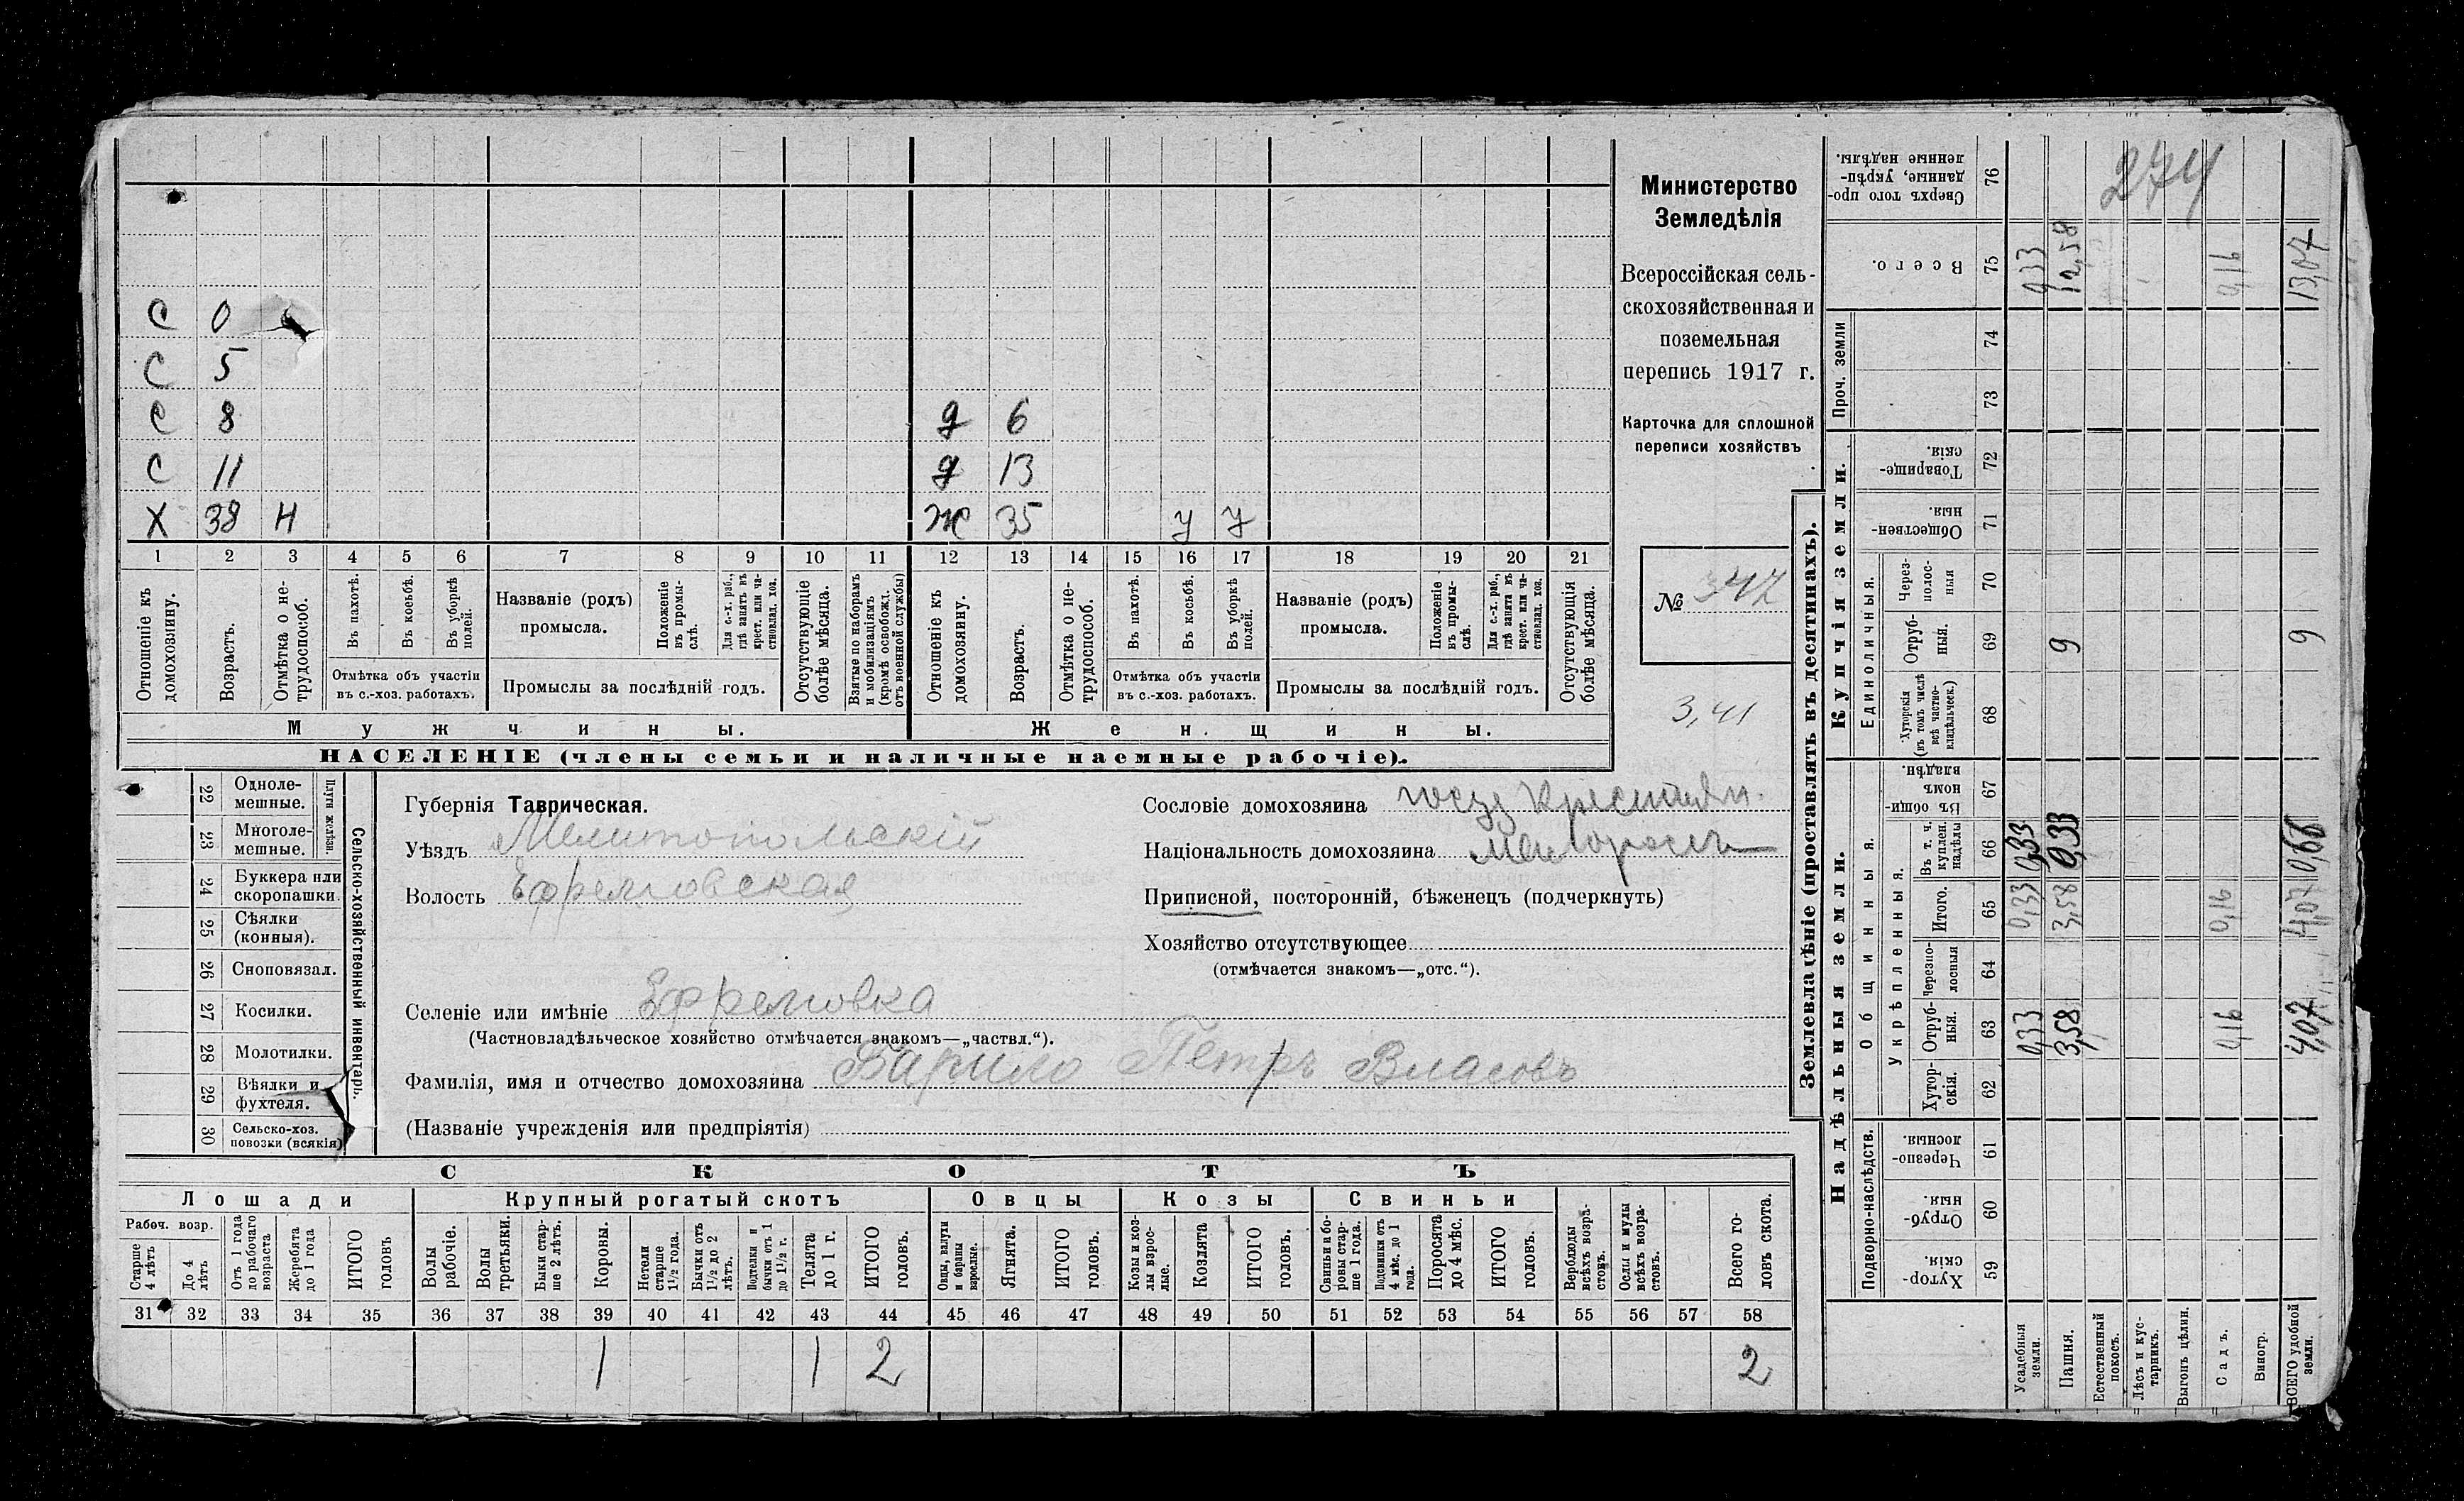 Министерство
Земледѣлія
Всероссійская сель-
скохозяйственная и
поземельная
перепись 1917 г.
Карточка для сплошной
переписи хозяйствъ
№ 347
3,41
274
С 0
С 5
С 8 д 6
С 11 д 13
Х 38 Н Ж 35 у у
1 2 3 4 5 6 7 8 9 10 11 12 13 14 15 16 17 18 19 20 21
Отношеніе къ домохозяину.
Возрастъ.
Отмѣтка о не-трудоспособ.
Въ пахотѣ.
Въ косьбѣ.
Въ уборкѣ полей.
Отмѣтка объ участіи
въ с.-хоз. работахъ.
Названіе (родъ)
промысла.
Положеніе въ промы-слѣ.
Для с.-х. раб., гдѣ занятъ въ крест. или ча-стновлад. хоз.
Промыслы за послѣдній годъ.
Отсутствующіе болѣе мѣсяца.
Взятые по наборамъ и мобилизаціямъ (кромѣ освобожд. отъ военной службы)
Отношеніе къ домохозяину.
Возрастъ.
Отмѣтка о не-трудоспособ.
Въ пахотѣ.
Въ косьбѣ.
Въ уборкѣ полей.
Отмѣтка объ участіи
въ с.-хоз. работахъ.
Названіе (родъ)
промысла.
Положеніе въ промы-слѣ.
Для с.-х. раб., гдѣ занята въ крест. или ча-стновлад. хоз.
Промыслы за послѣдній годъ.
Отсутствующія болѣе мѣсяца.
Мужчины. Женщины.
НАСЕЛЕНІЕ (члены семьи и наличные наемные рабочіе).
Сельско-хозяйственный инвентарь.
Плуги желѣзн.
22 Одноле-мешные.
23 Многоле-мешные.
24 Буккера или скоропашки.
25 Сѣялки (конныя).
26 Сноповязал.
27 Косилки.
28 Молотилки.
29 Вѣялки и фухтеля.
30 Сельско-хоз. повозки (всякія)
Губернія Таврическая.
Уѣздъ Мелитопольскій
Волость Ефремовская
Селеніе или имѣніе Ефремовка
(Частновладѣльческое хозяйство отмѣчается знакомъ—„частвл.“).
Фамилія, имя и отчество домохозяина Барило Петръ Власовъ
(Названіе учрежденія или предпріятія)
Сословіе домохозяина госуд Крестьян.
Національность домохозяина Малороссъ
Приписной, посторонній, бѣженецъ (подчеркнуть)
Хозяйство отсутствующее
(отмѣчается знакомъ—„отс.“).
СКОТЪ
Лошади Крупный рогатый скотъ Овцы Козы Свиньи
Рабоч. возр.
Старше 4 лѣтъ
До 4 лѣтъ
Отъ 1 года до рабочаго возраста
Жеребята до 1 года
ИТОГО головъ
Волы рабочіе.
Волы третьяки.
Быки стар-ше 2 лѣтъ.
Коровы.
Нетели старше 1½ года.
Бычки отъ 1½ до 2 лѣтъ.
Подтелки и бычки отъ 1 до 1½ г.
Телята до 1 г.
ИТОГО головъ.
Овцы, валухи и бараны взрослые.
Ягнята.
ИТОГО головъ.
Козы и коз-лы взрос-лые.
Козлята
ИТОГО головъ.
Свиньи и бо-ровы стар-ше 1 года.
Подсвинки отъ 4 мѣс. до 1 года.
Поросята до 4 мѣс.
ИТОГО головъ.
Верблюды всѣхъ возра-стовъ.
Ослы и мулы всѣхъ возра-стовъ.
Всего го-ловъ скота.
31 32 33 34 35 36 37 38 39 40 41 42 43 44 45 46 47 48 49 50 51 52 53 54 55 56 57 58
1 1 2 2
Землевладѣніе (проставлять въ десятинахъ).
Надѣльныя земли. Купчія земли. Проч. земли
Подворно-наслѣдств. Общинныя. Единоличныя.
Укрѣпленныя.
59 Хутор-скія.
60 Отруб-ныя.
61 Черезпо-лосныя.
62 Хутор-скія.
63 Отруб-ныя. 0,33 3,58 0,16 4,07
64 Черезпо-лосныя
65 Итого. 0,33 3,58 0,16 4,07
66 Въ т. ч. куплен. надѣлы 0,33 0,33 0,66
67 Въ общи-номъ владѣн.
68 Хуторскія (въ томъ числѣ всѣ частно-владѣльческ.)
69 Отруб-ныя. 9 9
70 Через-полос-ныя
71 Обществен-ныя.
72 Товарище-скія.
73
74
75 Всего. 0,33 12,58 0,16 13,07
76 Сверхъ того про-данные, укрѣп-ленные надѣлы.
Усадебныя земли.
Пашня.
Естественный покосъ.
Лѣсъ и кус-тарникъ.
Выгонъ цѣлин.
Садъ.
Виногр.
ВСЕГО удобной земли.